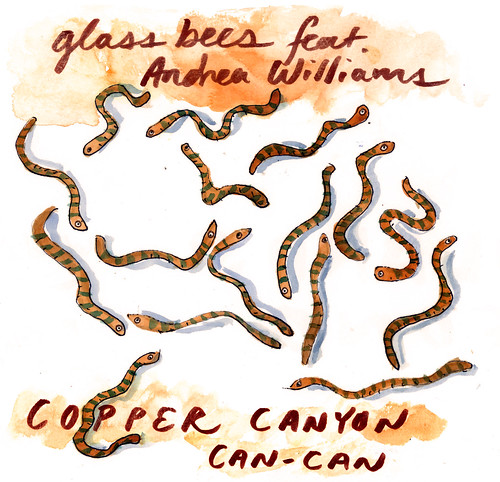 glass bees feat.
Andrea Williams
COPPER CANYON
CAN-CAN